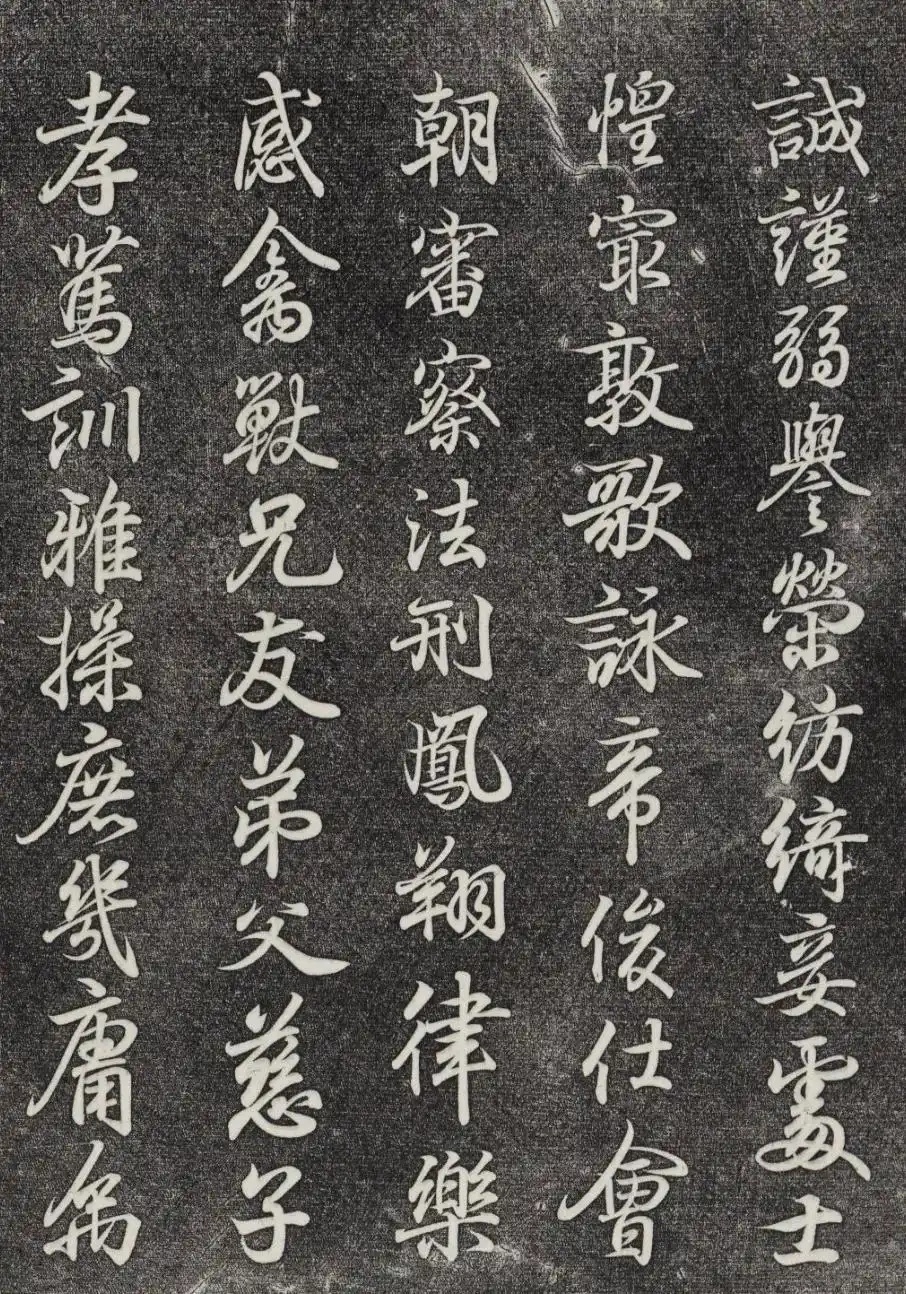 誠謹弱譽榮紡綺妾處士
惶最敦歌詠帝俊仕會
朝審察法刑鳳翔律樂
感禽獸兄友弟父慈子
孝篤訓雅操庶幾庸